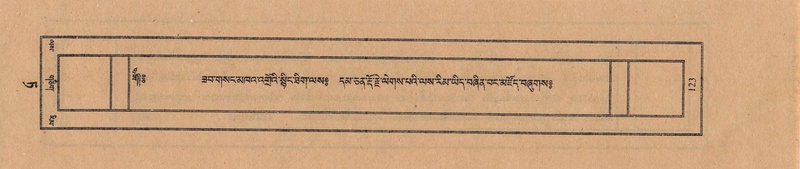 ༄༅༔ ཟབ་གསང་མཁའ་འགྲོའི་སྙིང་ཐིག་ལས༔ དམ་ཅན་རྡོ་རྗེ་ལེགས་པའི་ལས་རིམ་ཡིད་བཞིན་བང་མཛོད་བཞུགས༔
123